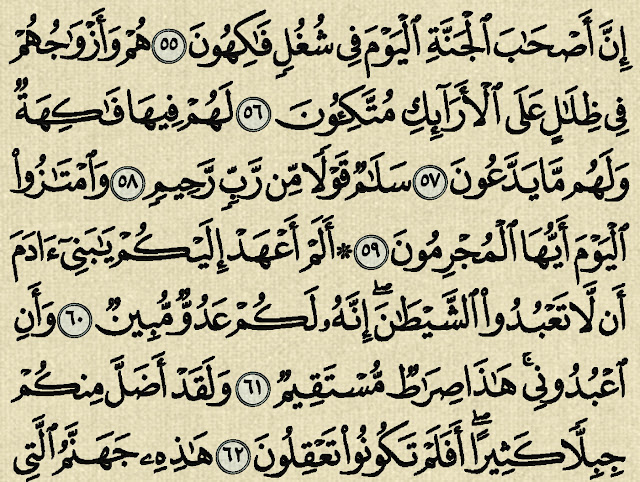 إِنَّ أَصْحَٰبَ ٱلْجَنَّةِ ٱلْيَوْمَ فِى شُغُلٍ فَٰكِهُونَ ٥٥ هُمْ وَأَزْوَٰجُهُمْ
فِى ظِلَٰلٍ عَلَى ٱلْأَرَآئِكِ مُتَّكِـُٔونَ ٥٦ لَهُمْ فِيهَا فَٰكِهَةٌ
وَلَهُم مَّا يَدَّعُونَ ٥٧ سَلَٰمٌ قَوْلًا مِّن رَّبٍّ رَّحِيمٍ ٥٨ وَٱمْتَٰزُوا۟
ٱلْيَوْمَ أَيُّهَا ٱلْمُجْرِمُونَ ٥٩ * أَلَمْ أَعْهَدْ إِلَيْكُمْ يَٰبَنِىٓ ءَادَمَ
أَن لَّا تَعْبُدُوا۟ ٱلشَّيْطَٰنَ ۖ إِنَّهُۥ لَكُمْ عَدُوٌّ مُّبِينٌ ٦٠ وَأَنِ
ٱعْبُدُونِى ۚ هَٰذَا صِرَٰطٌ مُّسْتَقِيمٌ ٦١ وَلَقَدْ أَضَلَّ مِنكُمْ
جِبِلًّا كَثِيرًا ۖ أَفَلَمْ تَكُونُوا۟ تَعْقِلُونَ ٦٢ هَٰذِهِۦ جَهَنَّمُ ٱلَّتِى